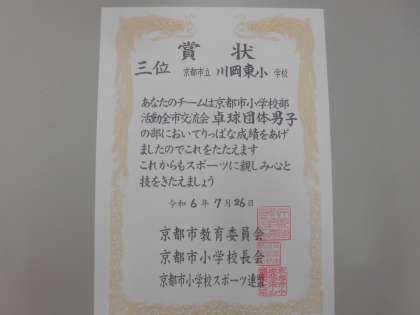 賞状
三位 京都市立 川岡東小 学校
あなたのチームは京都市小学校部
活動全市交流会 卓球団体男子
の部においてりっぱな成績をあげ
ましたのでこれをたたえます
これからもスポーツに親しみ心と
技をきたえましょう
令和6年7月26日
京都市教育委員会
京都市小学校長会
京都市小学校スポーツ連盟